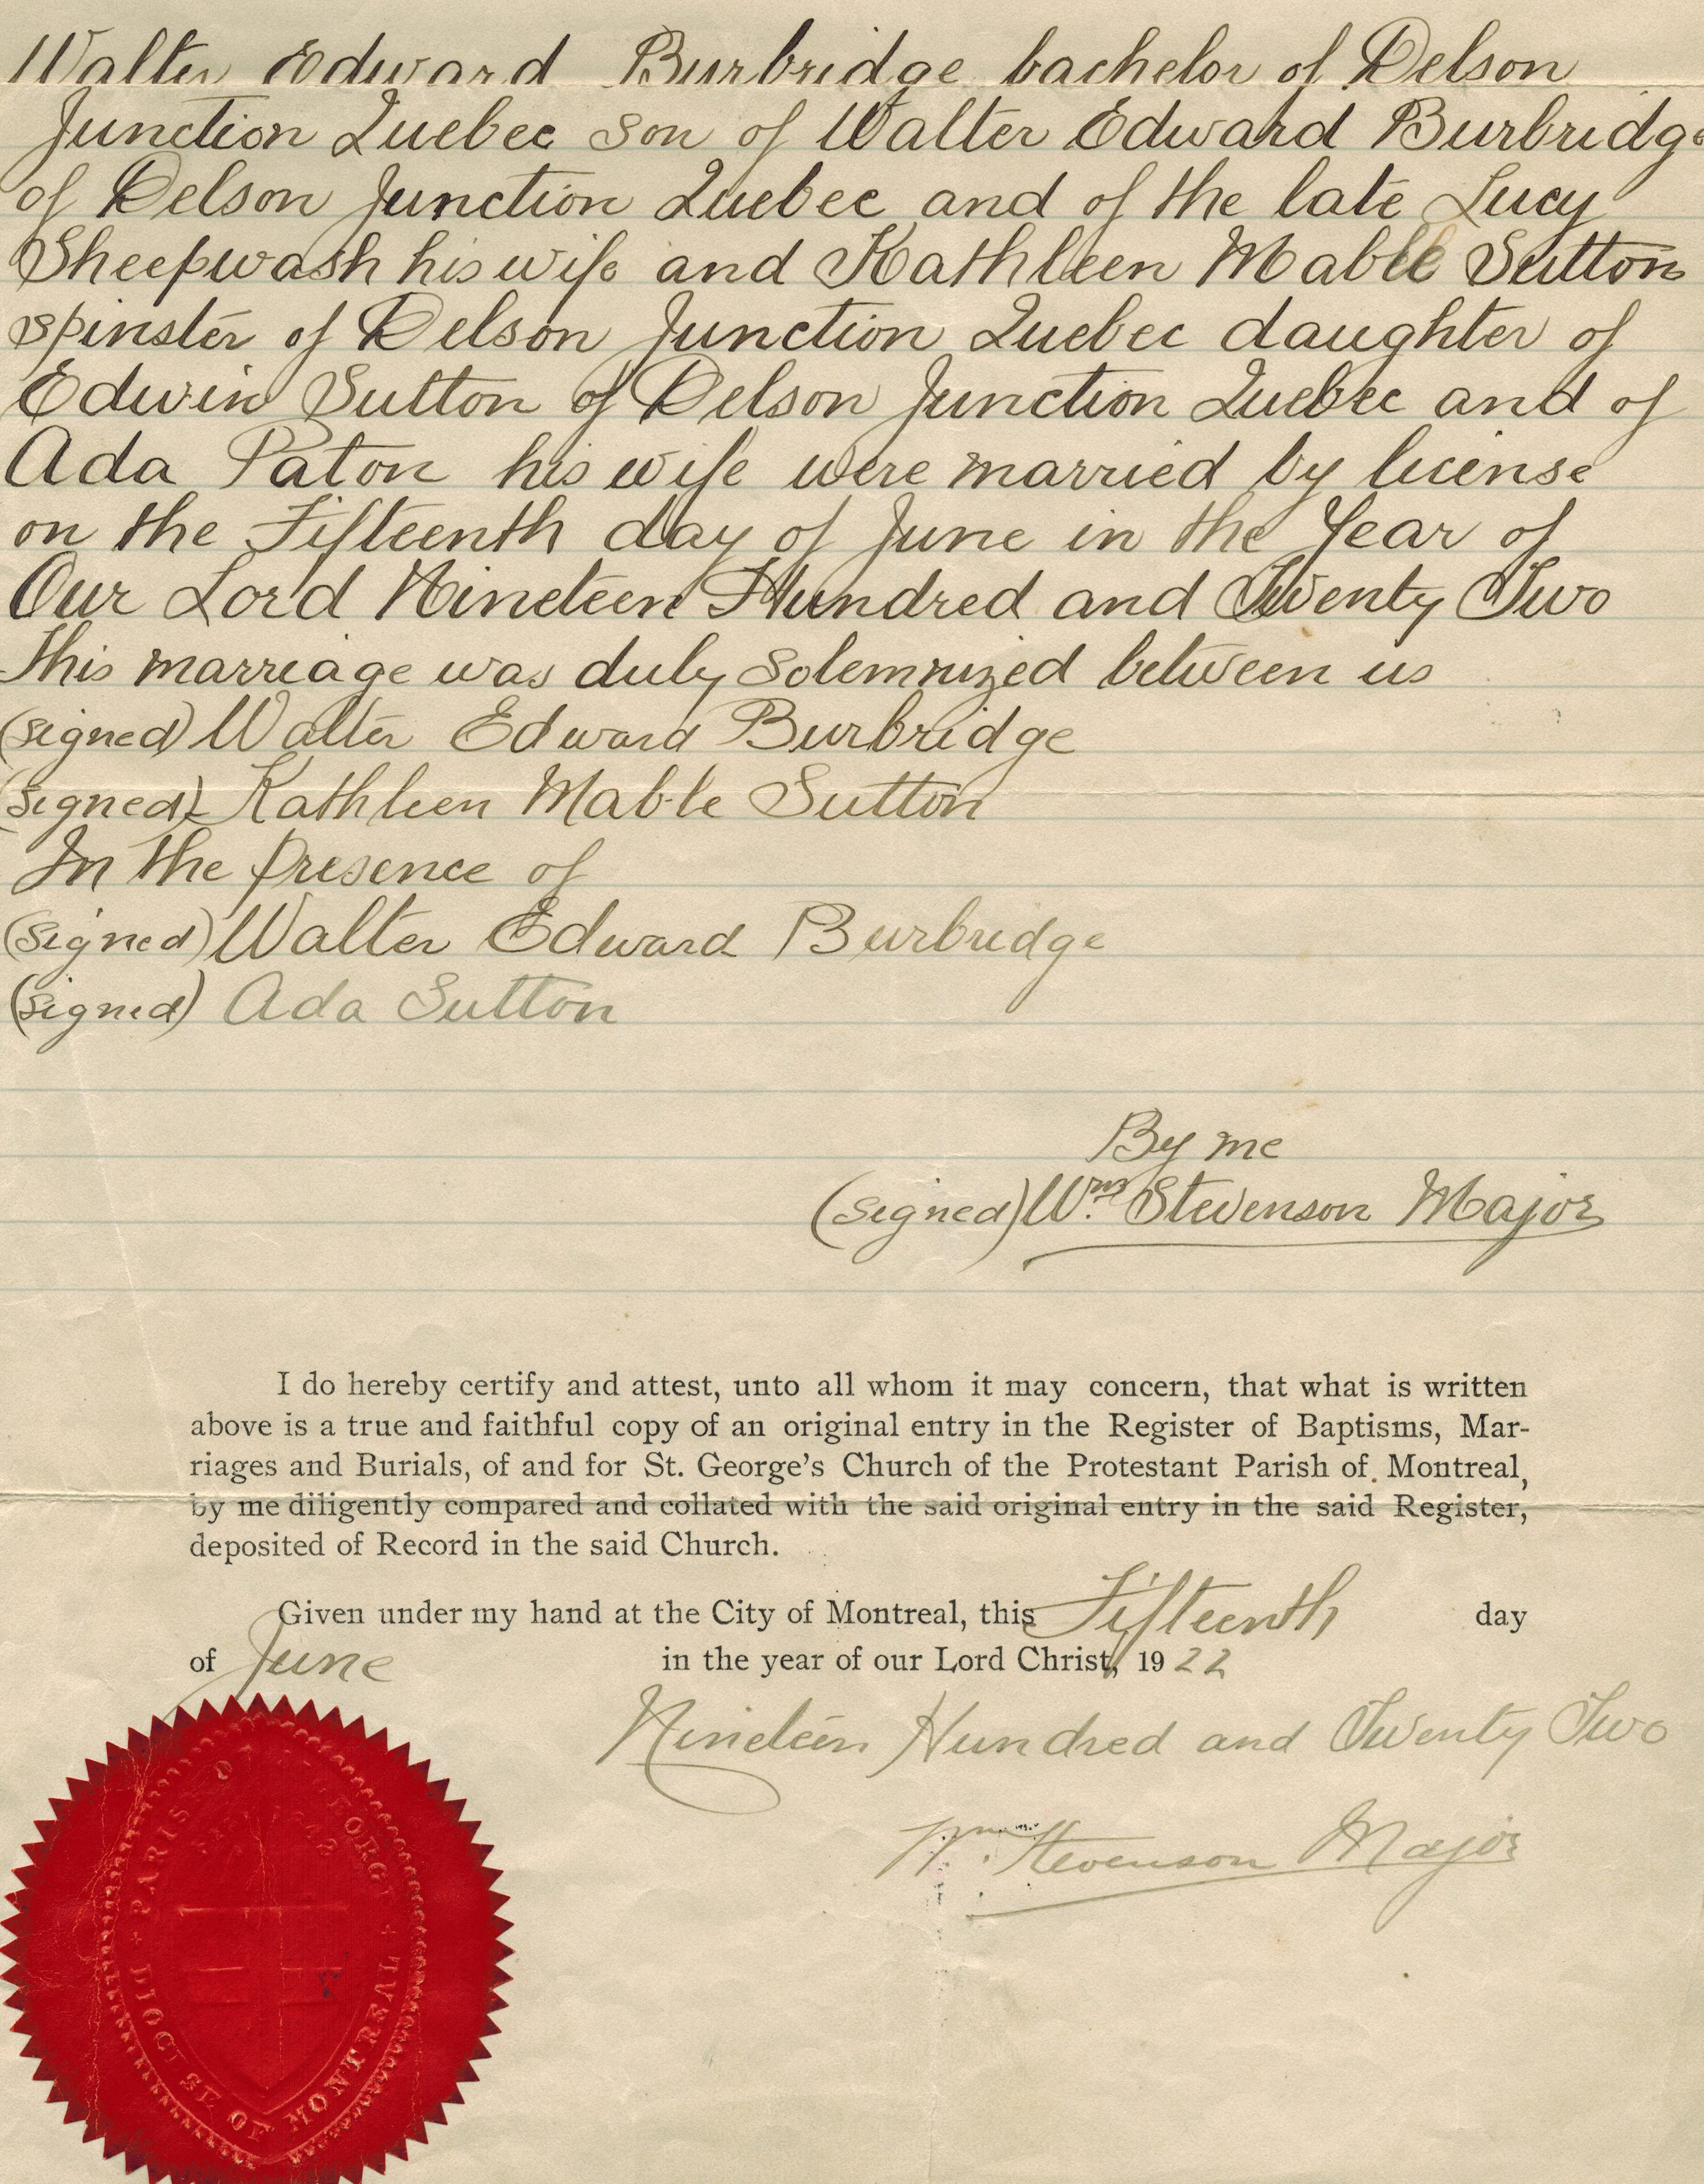 Walter Edward Burbridge bachelor of Delson
Junction Quebec son of Walter Edward Burbridge
of Delson Junction Quebec and of the late Lucy
Sheepwash his wife and Kathleen Mable Sutton
spinster of Delson Junction Quebec daughter of
Edwin Sutton of Delson Junction Quebec and of
Ada Paton his wife were married by license
on the Fifteenth day of June in the Year of
Our Lord Nineteen Hundred and Twenty Two
This marriage was duly Solemnized between us
(signed) Walter Edward Burbridge
(signed) Kathleen Mable Sutton
In the presence of
(signed) Walter Edward Burbridge
(signed) Ada Sutton
By me
(signed) Wm. Stevenson Major
I do hereby certify and attest, unto all whom it may concern, that what is written
above is a true and faithful copy of an original entry in the Register of Baptisms, Mar-
riages and Burials, of and for St. George's Church of the Protestant Parish of Montreal,
by me diligently compared and collated with the said original entry in the said Register,
deposited of Record in the said Church.
Given under my hand at the City of Montreal, this Fifteenth day
of June in the year of our Lord Christ, 1922
Nineteen Hundred and Twenty Two
Wm. Stevenson Major
DIOCESE OF MONTREAL